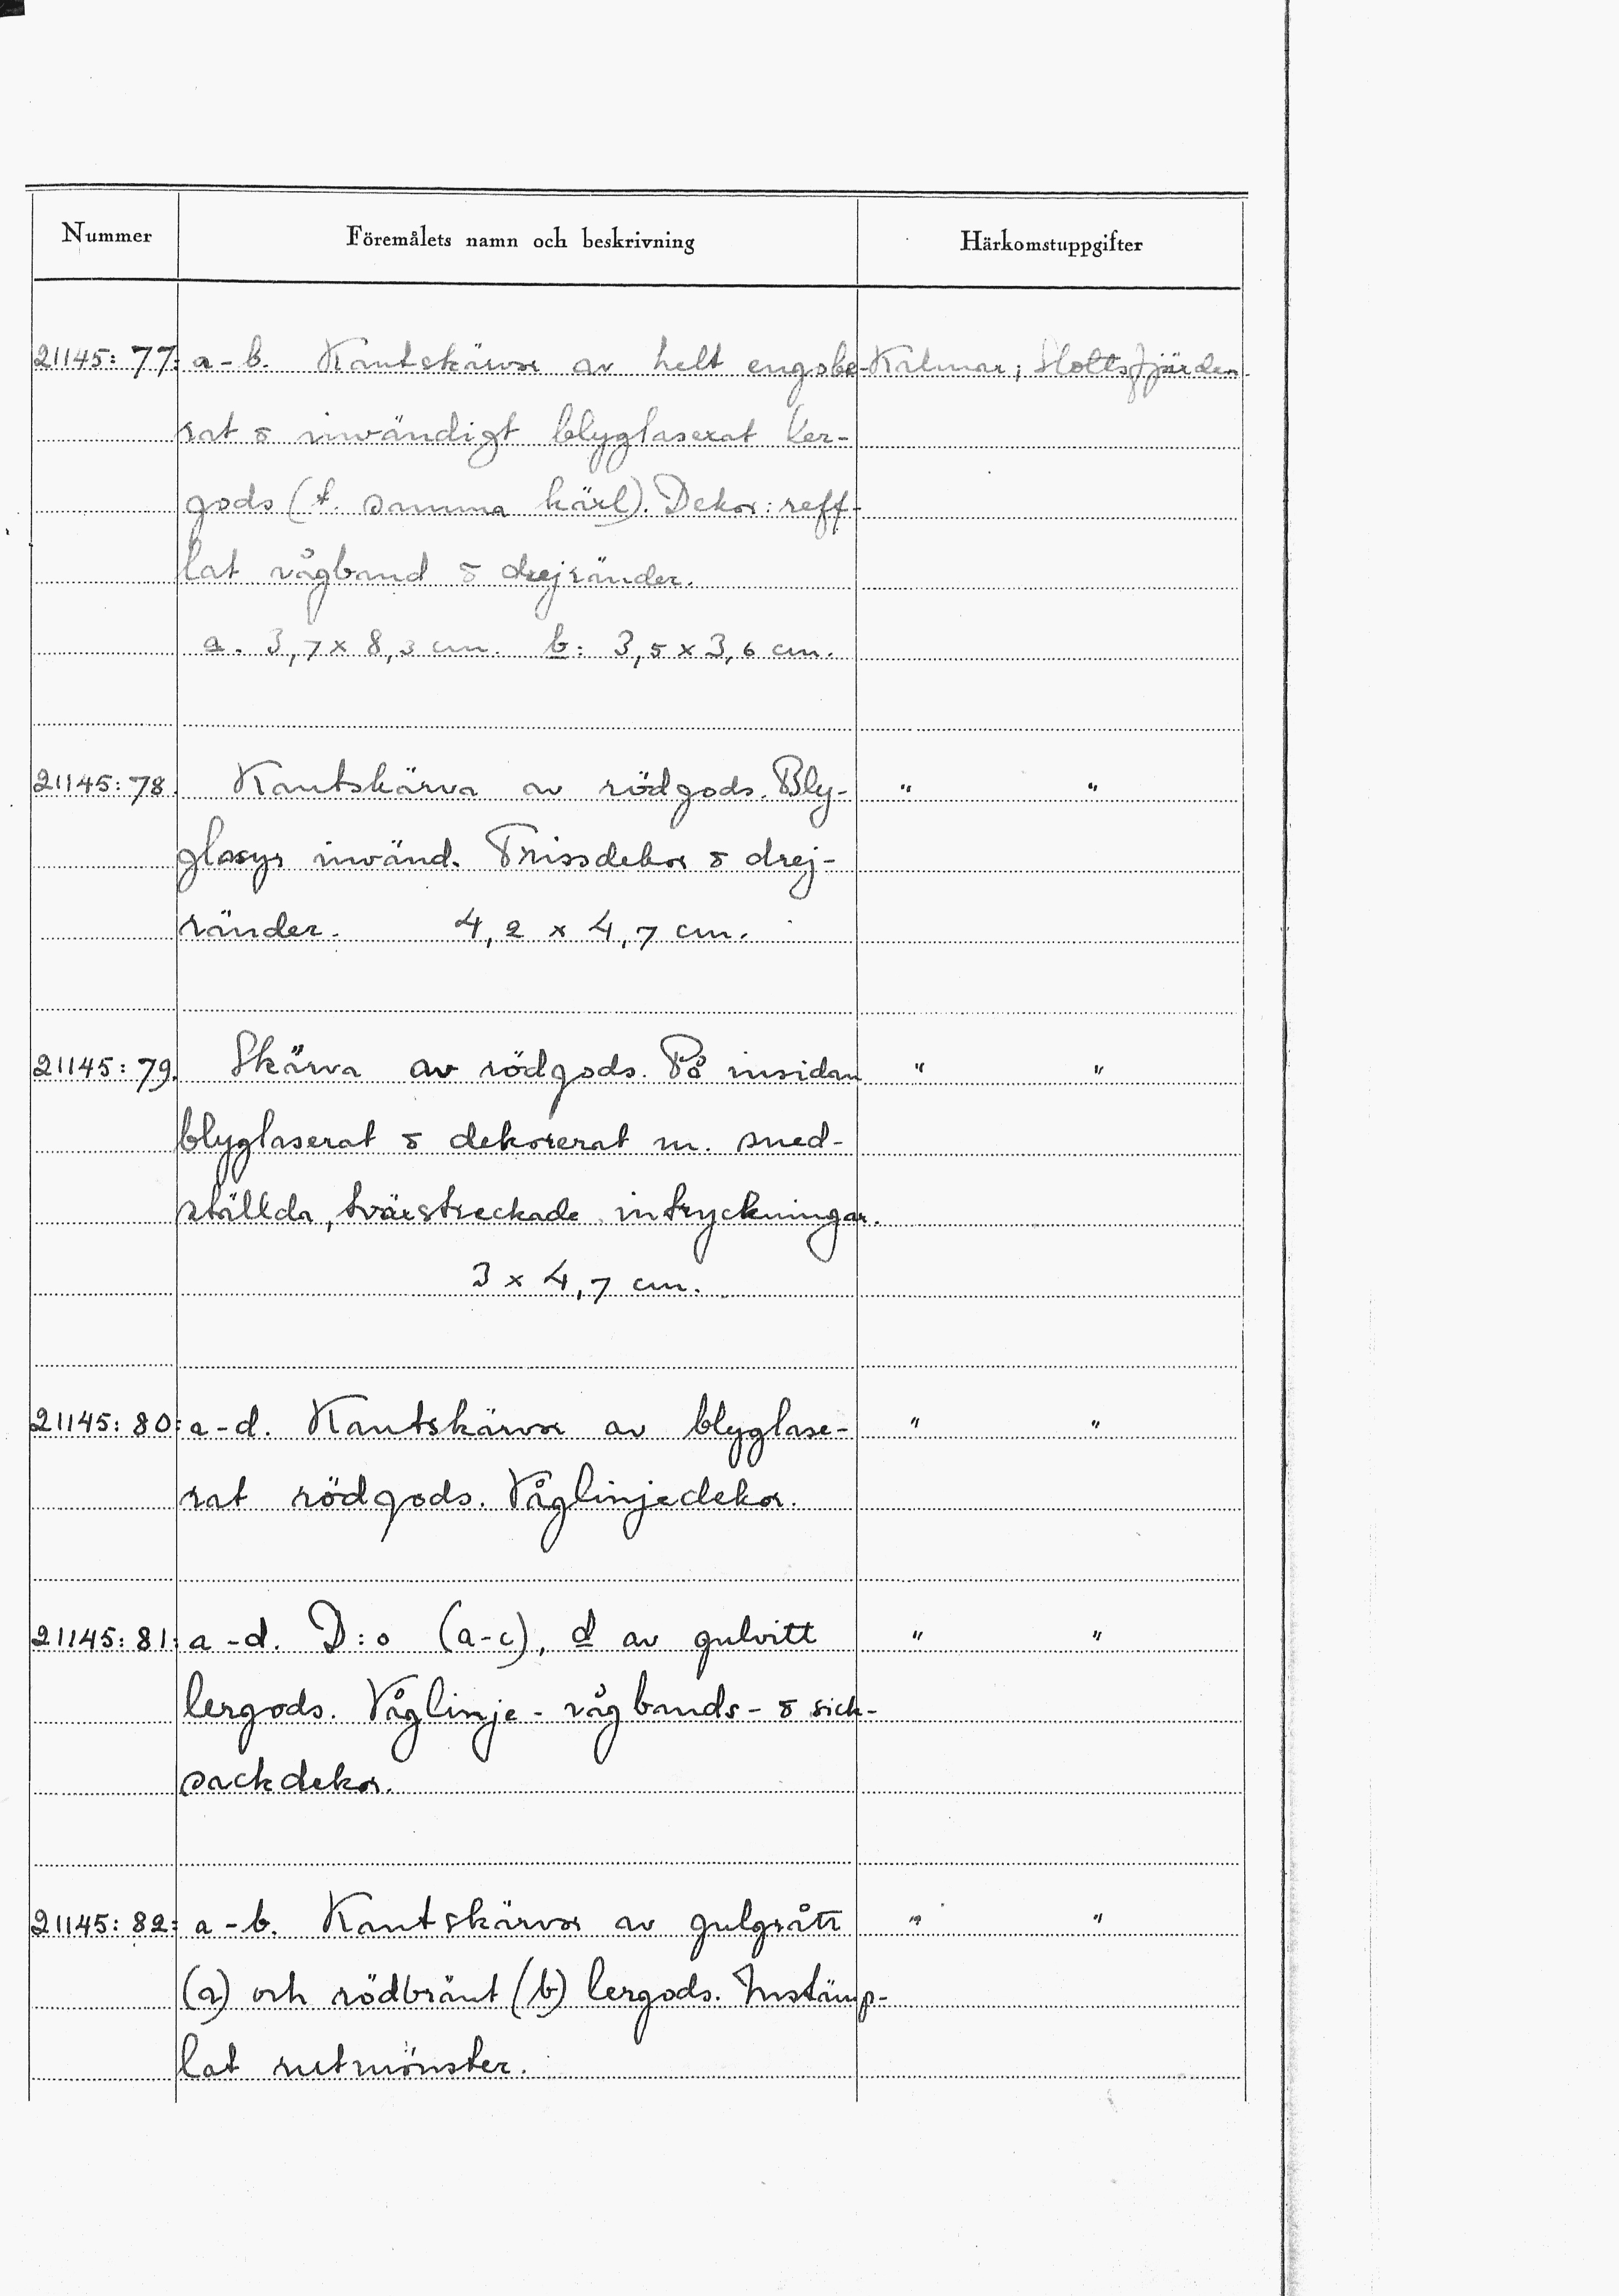 Nummer Föremålets namn och beskrivning Härkomstuppgifter
21145: 77: a-b. Kantskärvor av helt engobe- Kalmar; Slottsfjärden.
rat & invändigt blyglaserat ler-
gods (t. samma kärl). Dekor: reff-
lat vågband & drejränder.
a. 3,7 x 8,3 cm. b: 3,5 x 3,6 cm.
21145: 78. Kantskärva av rödgods. Bly- " "
glasyr invänd. Trissdekor & drej-
ränder. 4,2 x 4,7 cm.
21145: 79. Skärva av rödgods. På insidan " "
blyglaserat & dekorerat m. sned-
ställda, tvärstreckade intryckningar.
3 x 4,7 cm.
21145: 80: a-d. Kantskärvor av blyglase- " "
rat rödgods. Våglinjedekor.
21145: 81: a-d. D:o (a-c), d av gulvitt " "
lergods. Våglinje- vågbands- & sick-
sackdekor.
21145: 82: a-b. Kantskärvor av gulgrått " "
(a) och rödbränt (b) lergods. Instämp-
lat rutmönster.